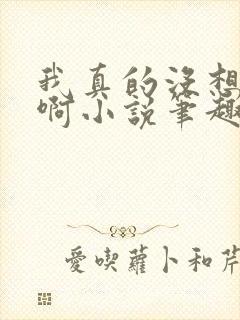 我真的没想
啊小说笔趣
愛喫蘿卜和芹